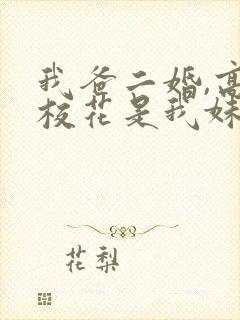 我爸二婚,高
校花是我妹
花梨